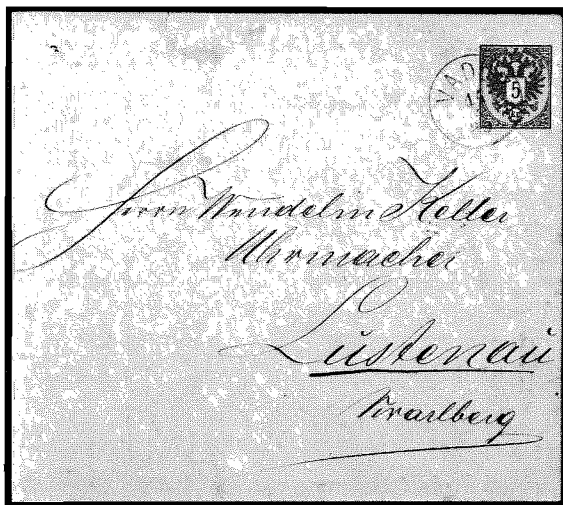 VAD
5
Herrn Wendelin Keller
Uhrmacher
Lustenau
Vrarlberg